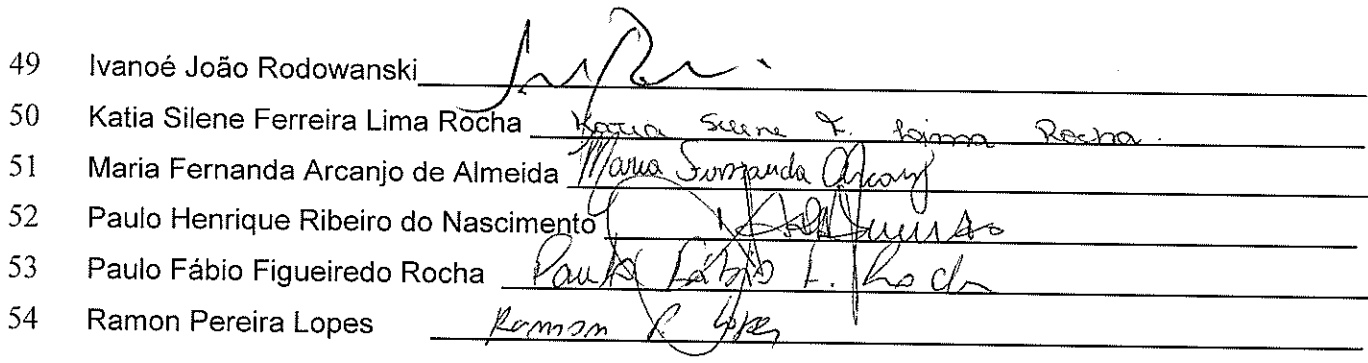 49 Ivanoé João Rodowanski
50 Katia Silene Ferreira Lima Rocha Katia Silene F. Lima Rocha.
51 Maria Fernanda Arcanjo de Almeida Maria Fernanda Arcanj
52 Paulo Henrique Ribeiro do Nascimento
53 Paulo Fábio Figueiredo Rocha Paulo Fábio F. Rocha
54 Ramon Pereira Lopes Ramon P. Lopes